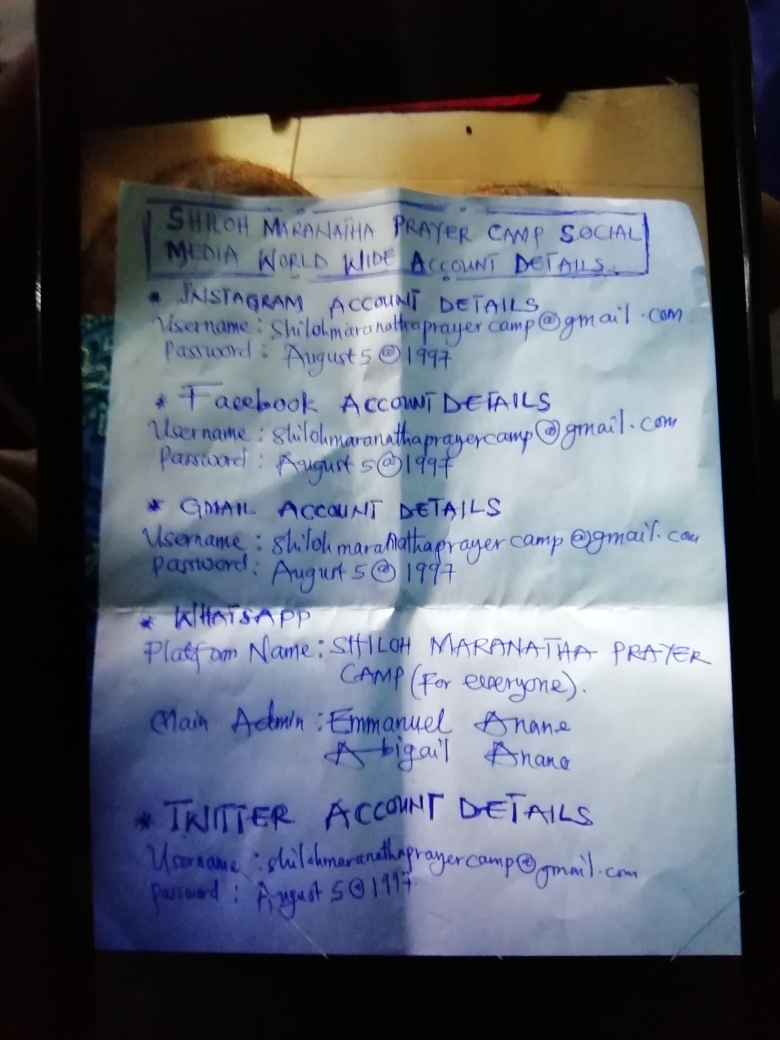 SHILOH MARANATHA PRAYER CAMP SOCIAL
MEDIA WORLD WIDE ACCOUNT DETAILS.
* INSTAGRAM ACCOUNT DETAILS
Username: Shilohmaranathaprayercamp@gmail.com
Password: August5@1997
* Facebook ACCOUNT DETAILS
Username: Shilohmaranathaprayercamp@gmail.com
Password: August5@1997
* GMAIL ACCOUNT DETAILS
Username: Shilohmaranathaprayercamp@gmail.com
Password: August5@1997
* WHATSAPP
Platform Name: SHILOH MARANATHA PRAYER
CAMP (For everyone).
Main Admin: Emmanuel Anane
Abigail Anane
* TWITTER ACCOUNT DETAILS
Username: shilohmaranathaprayercamp@gmail.com
Password: August5@1997